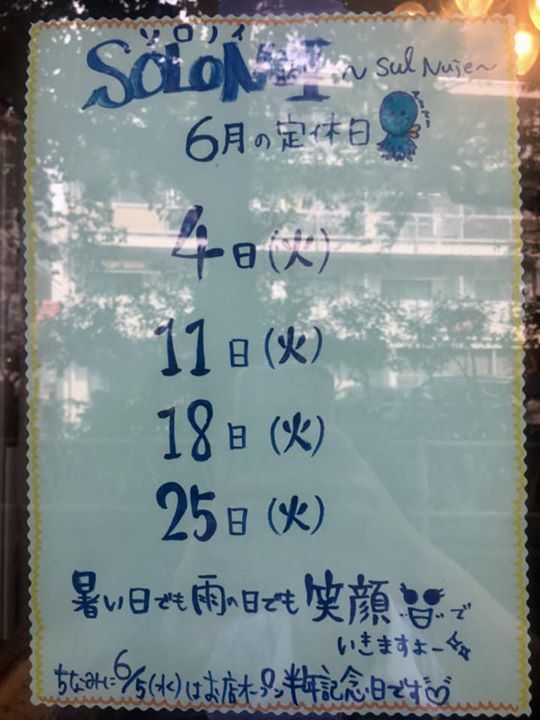 ソロノイ
SOLONOI ~ Sul Nuie ~
6月の定休日
4日(火)
11日(火)
18日(火)
25日(火)
暑い日でも雨の日でも笑顔で
いきますよー
ちなみに6/5(水)はお店オープン半年記念日です